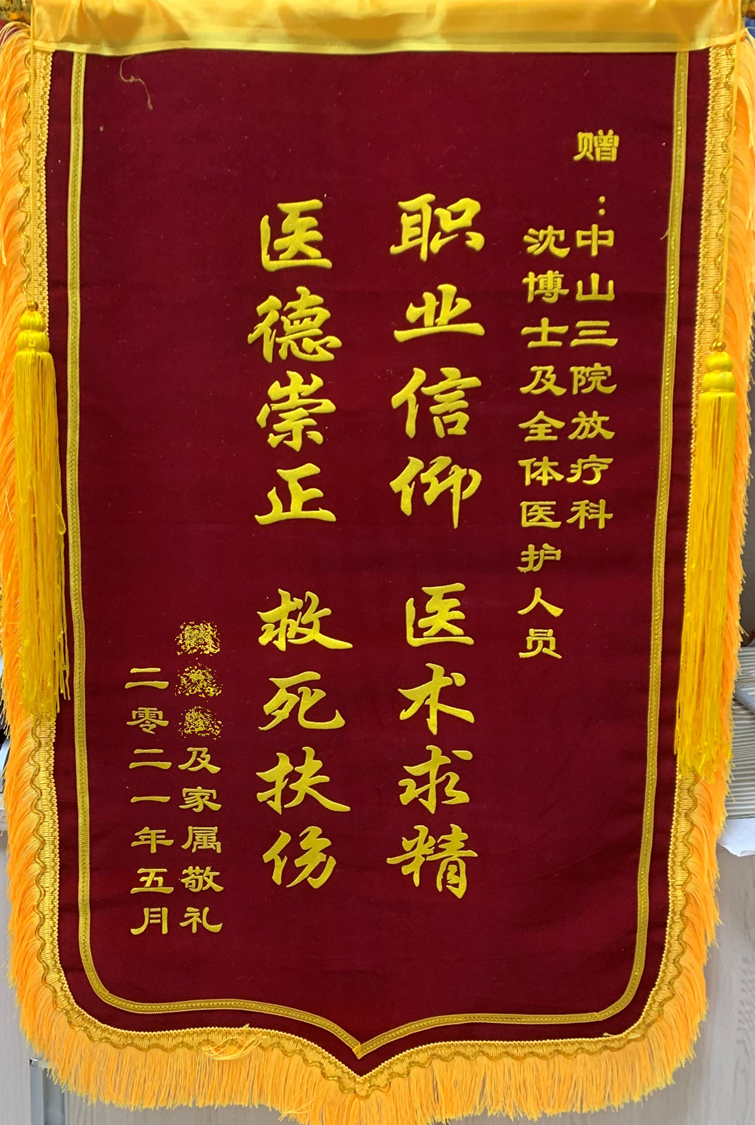 赠：中山三院放疗科
沈博士及全体医护人员
职业信仰 医术求精
医德崇正 救死扶伤
及家属敬礼
二零二一年五月